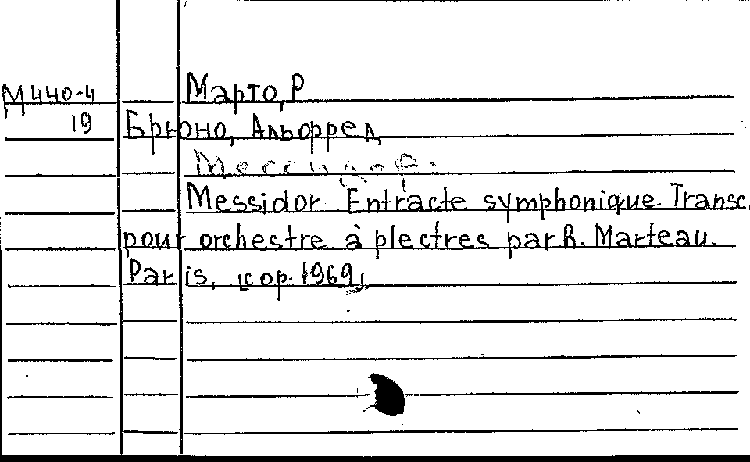 М440-4 Марто, Р
19 Брюно, Альфред
Мессидор.
Messidor Entracte symphonique. Transc.
pour orchestre à plectres par R. Marteau.
Paris, [cop. 1969]